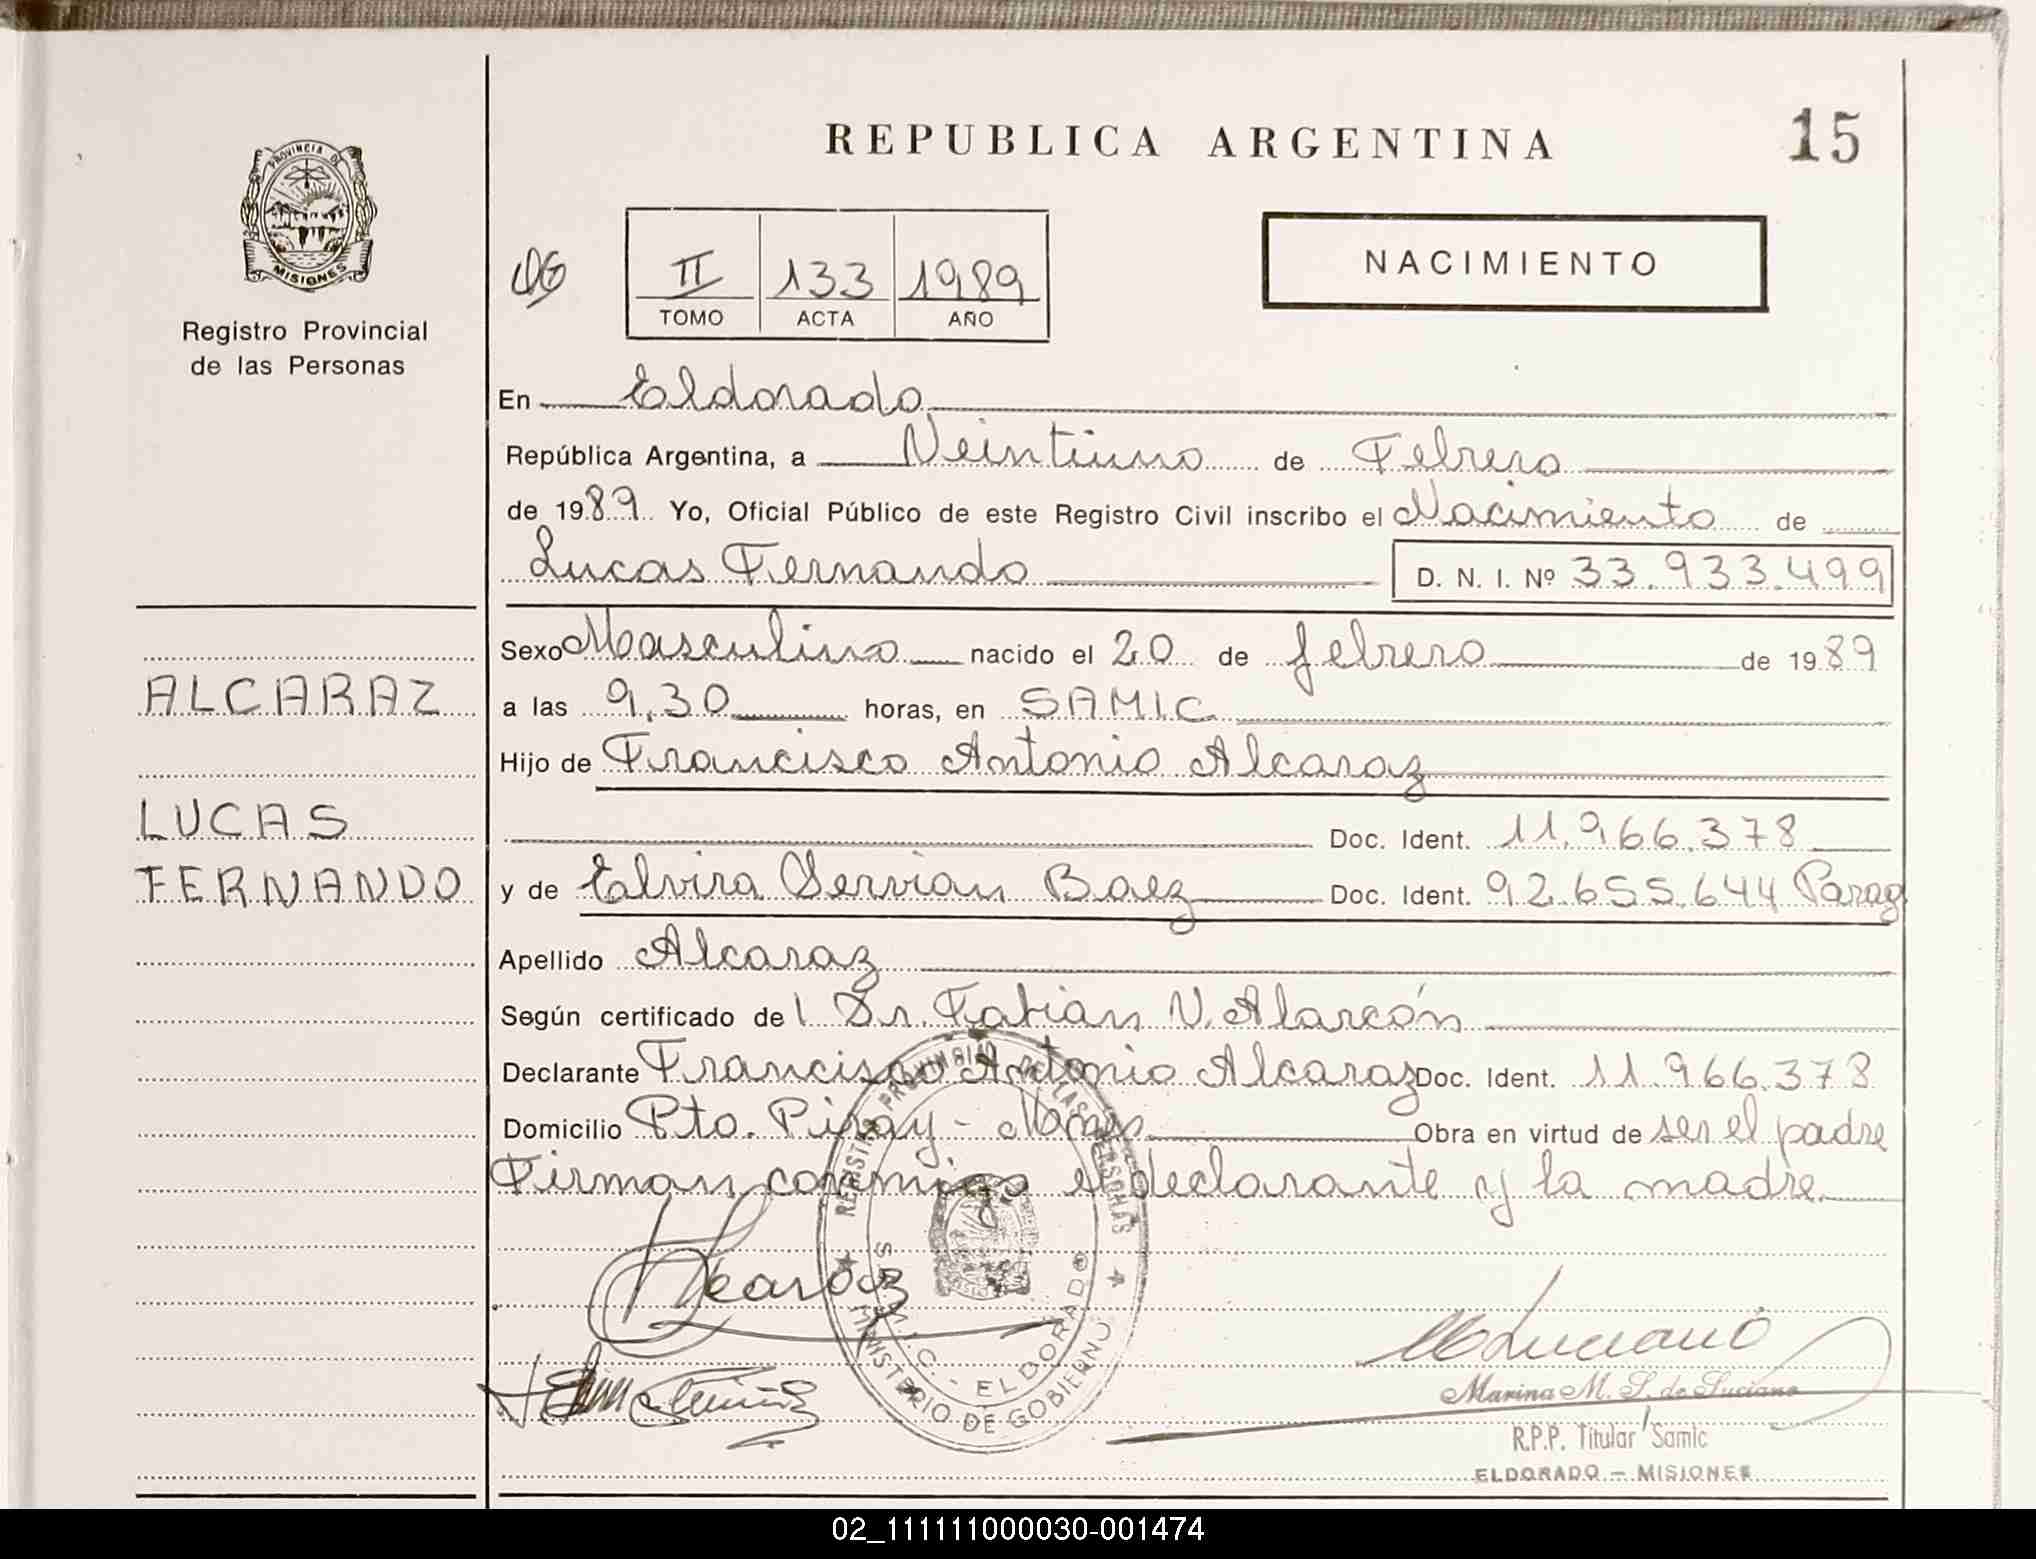 REPUBLICA ARGENTINA
15
PROVINCIA D
MISIONES
Registro Provincial
de las Personas
II 133 1989
TOMO ACTA AÑO
NACIMIENTO
En Eldorado
República Argentina, a Veintiuno de Febrero
de 1989 Yo, Oficial Público de este Registro Civil inscribo el Nacimiento de
Lucas Fernando D. N. I. Nº 33.933.499
Sexo Masculino nacido el 20 de febrero de 1989
ALCARAZ
a las 9,30 horas, en SAMIC
Hijo de Francisco Antonio Alcaraz
LUCAS
Doc. Ident. 11.966.378
FERNANDO
y de Elvira Servian Baez Doc. Ident. 92.655.644 Parag
Apellido Alcaraz
Según certificado de l Dr. Fabián V. Alarcón
Declarante Francisco Antonio Alcaraz Doc. Ident. 11.966.378
Domicilio Pto. Piray - Mnes Obra en virtud de ser el padre
Firman conmigo el declarante y la madre
REGISTRO PROVINCIAL DE LAS PERSONAS
S.A.M.I.C. - ELDORADO
MINISTERIO DE GOBIERNO
Alcaraz
Luciano
Marina M. S. de Luciano
R.P.P. Titular Samic
ELDORADO - MISIONES
02_111111000030-001474